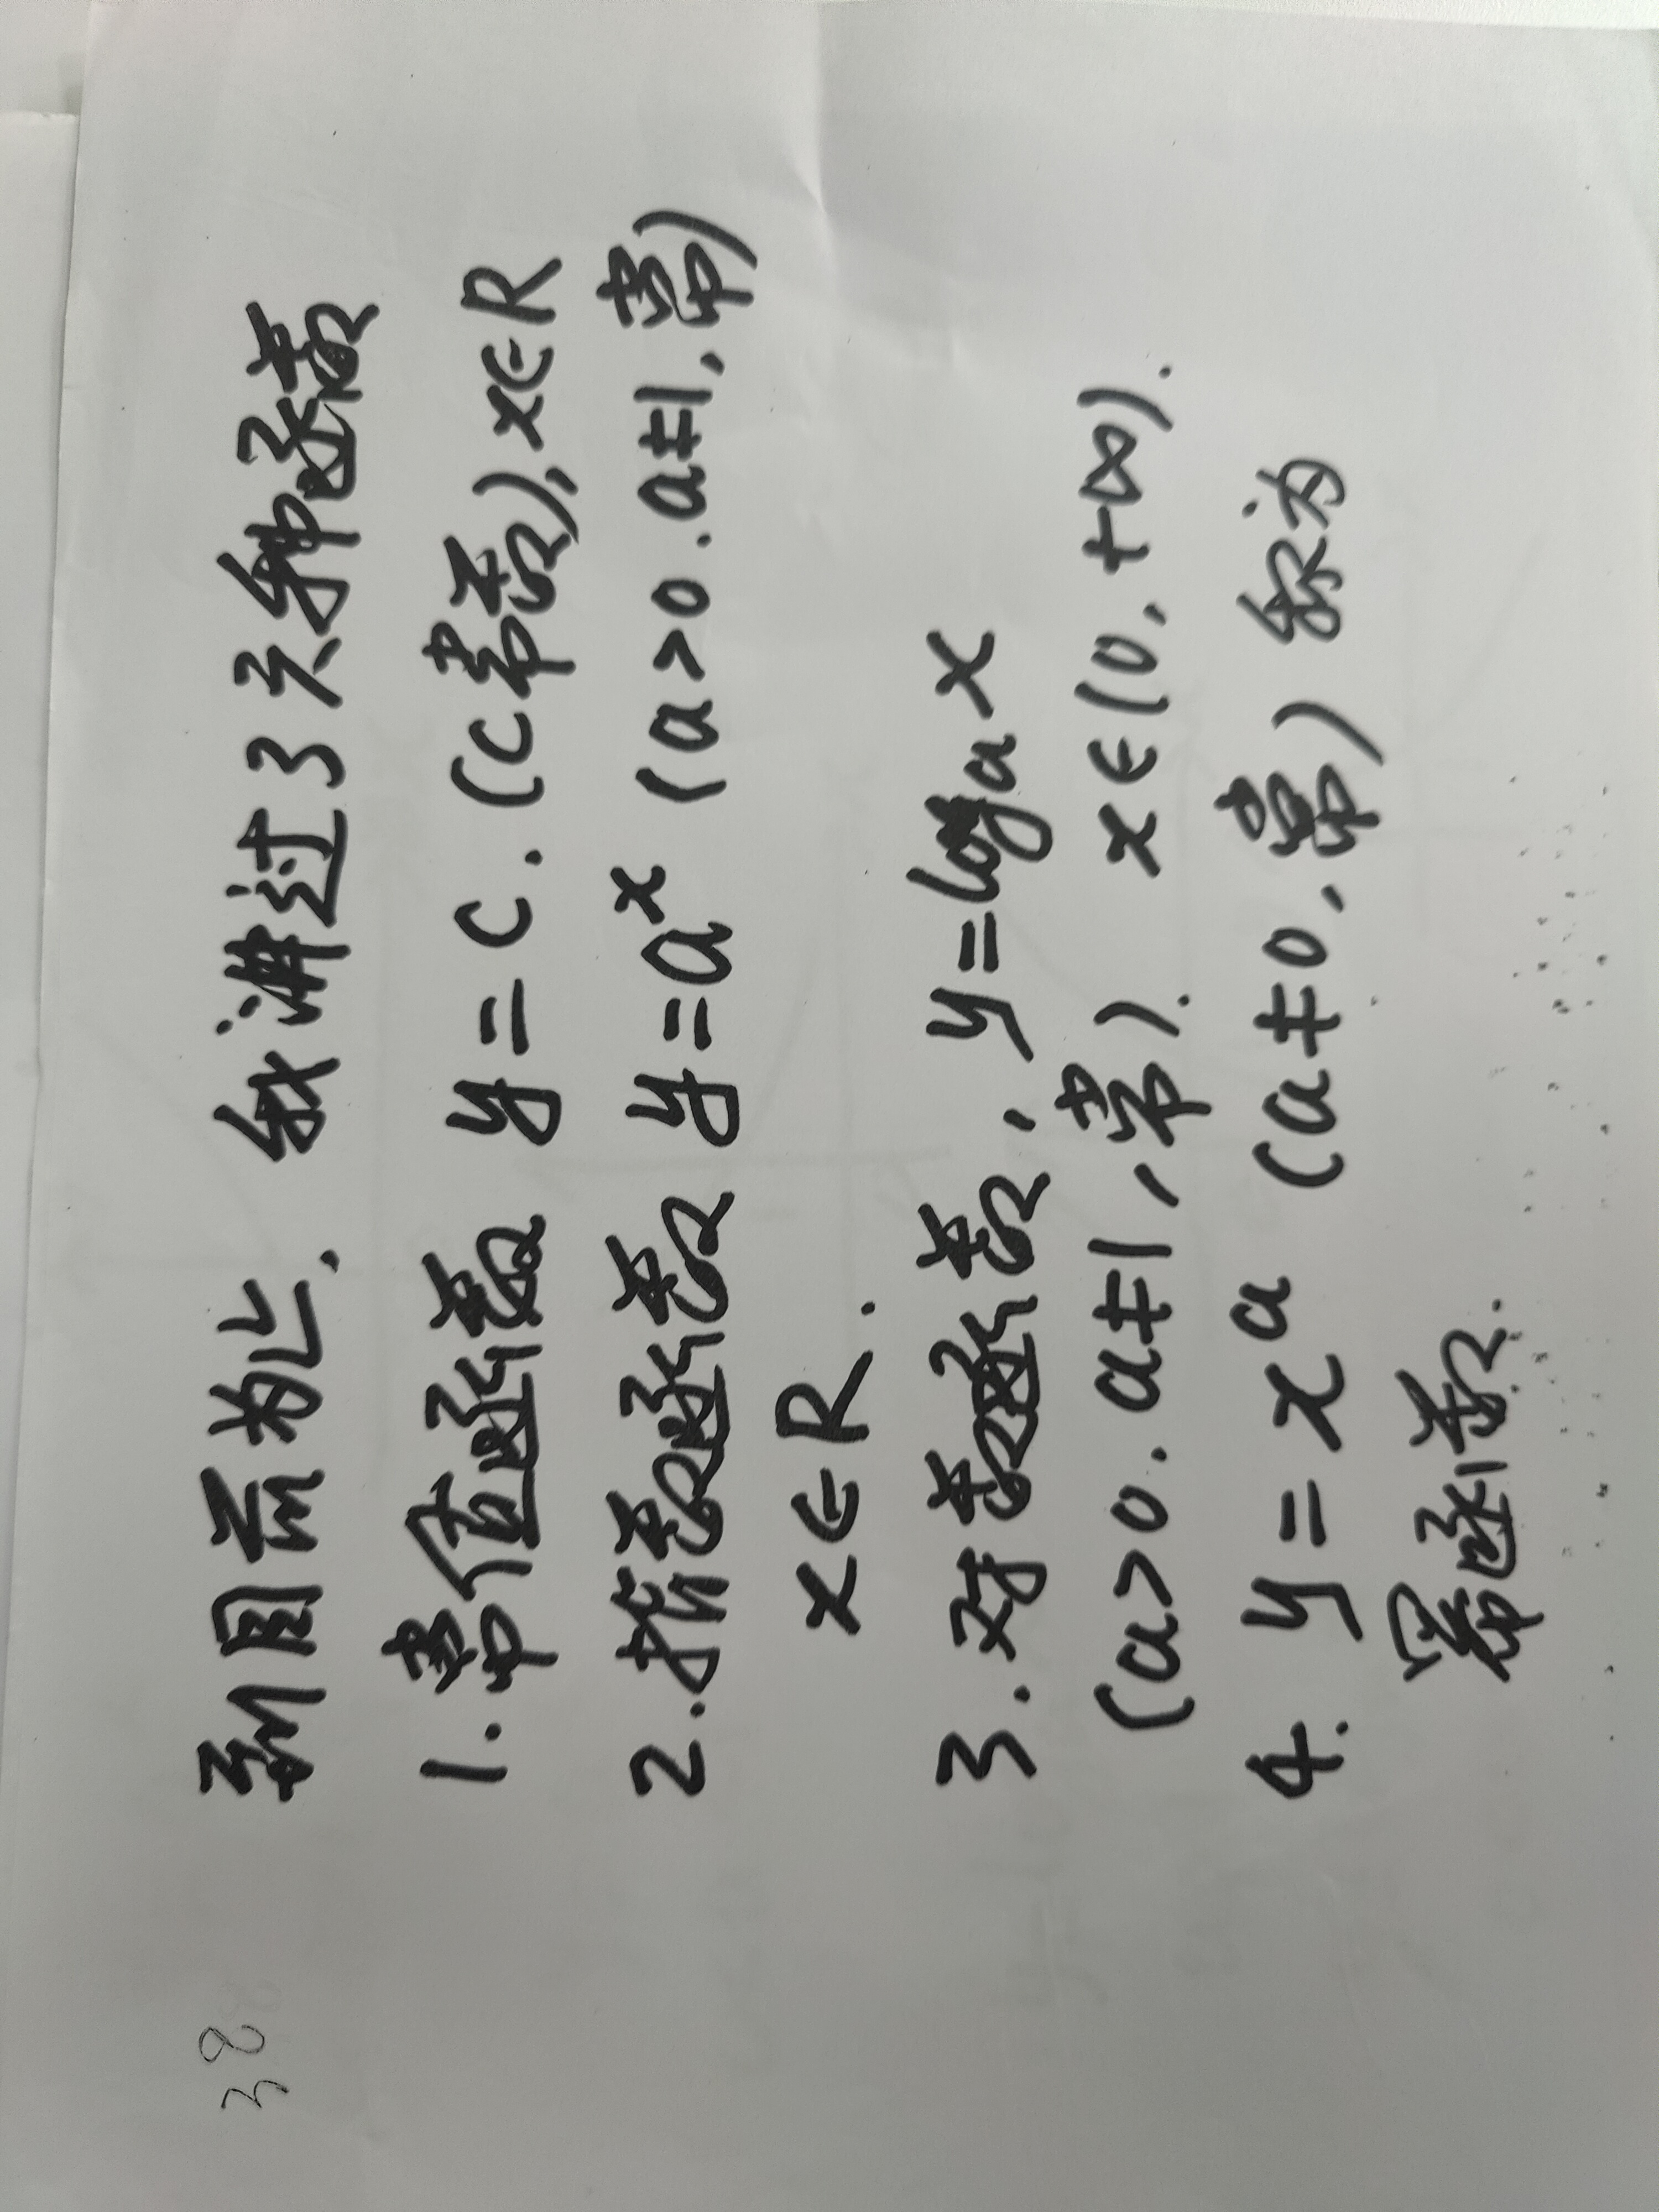 38
到目前为止. 我讲过了3六种函数
1.常值函数 y=c.(c常数),x∈R
2.指数函数 y=aˣ (a>0.a≠1,常)
x∈R.
3.对数函数, y=logₐx
(a>0.a≠1,常). x∈(0,+∞).
4. y=xᵃ (a≠0,常) 称为
幂函数.